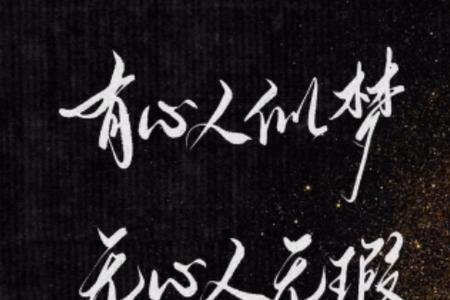 有心人似梦
无心人无瑕